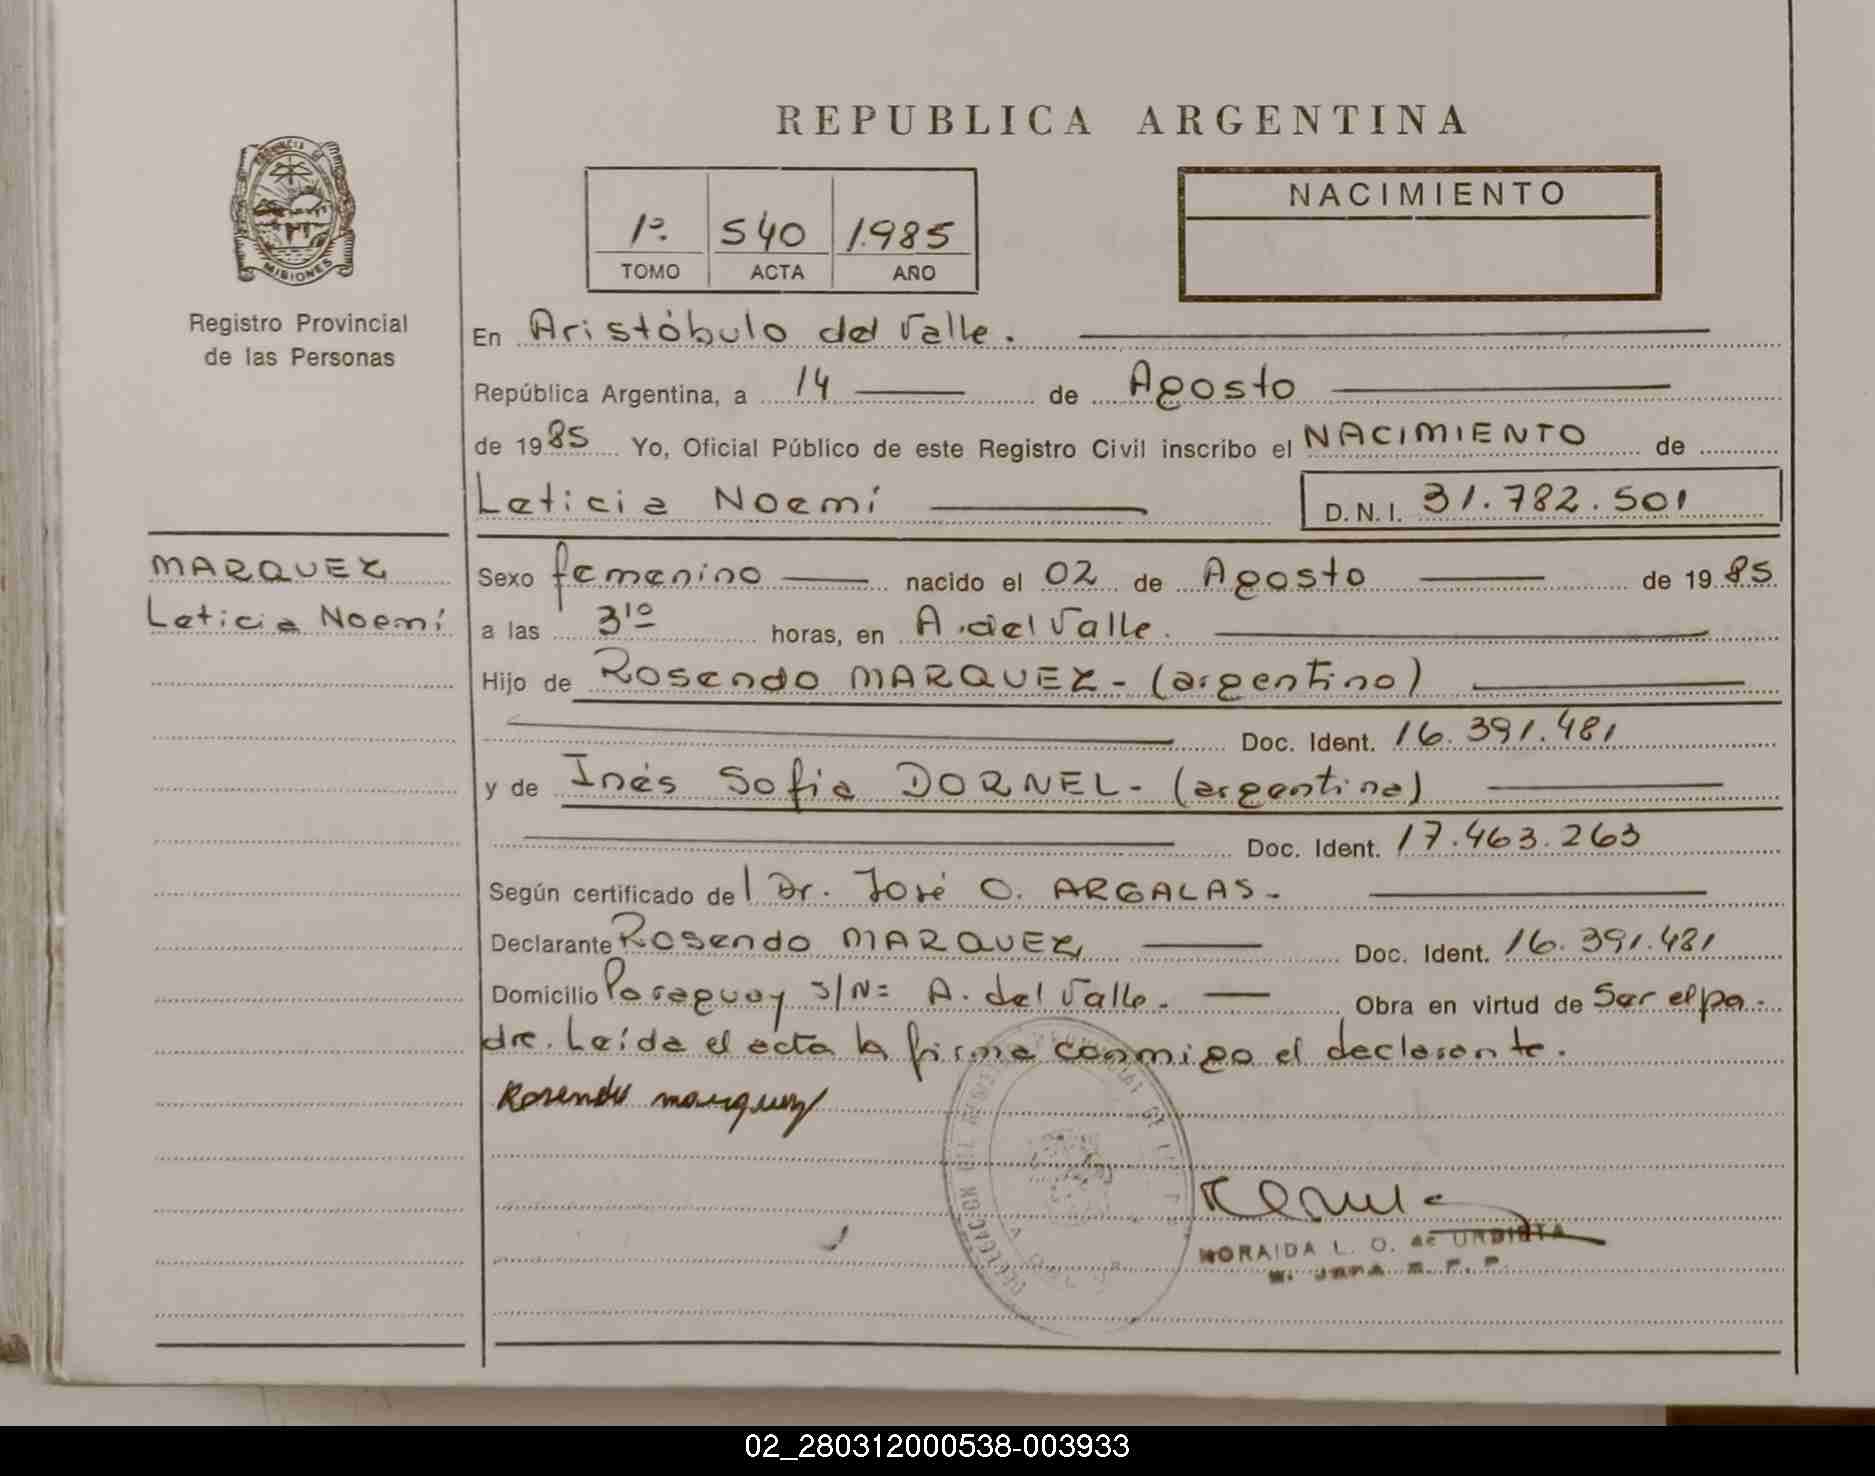 REPUBLICA ARGENTINA
PROVINCIA DE
MISIONES
Registro Provincial
de las Personas
1º. 540 1.985
TOMO ACTA AÑO
NACIMIENTO
En Aristóbulo del Valle.
República Argentina, a 14 de Agosto
de 1985 Yo, Oficial Público de este Registro Civil inscribo el NACIMIENTO de
Leticia Noemí D.N.I. 31.782.501
MARQUEZ
Leticia Noemí
Sexo femenino nacido el 02 de Agosto de 1985
a las 3¹⁰ horas, en A. del Valle.
Hijo de Rosendo MARQUEZ - (argentino)
Doc. Ident. 16.391.481
y de Inés Sofia DORNEL - (argentina)
Doc. Ident. 17.463.263
Según certificado del Dr. José O. ARGALAS -
Declarante Rosendo MARQUEZ Doc. Ident. 16.391.481
Domicilio Paraguay s/N= A. del Valle. Obra en virtud de Ser el pa-
dre. Leída el acta la firma conmigo el declarante.
Rosendo marquez
DELEGACION DEL REGISTRO PROVINCIAL DE
NORAIDA L. O. de URBIETA
02_280312000538-003933